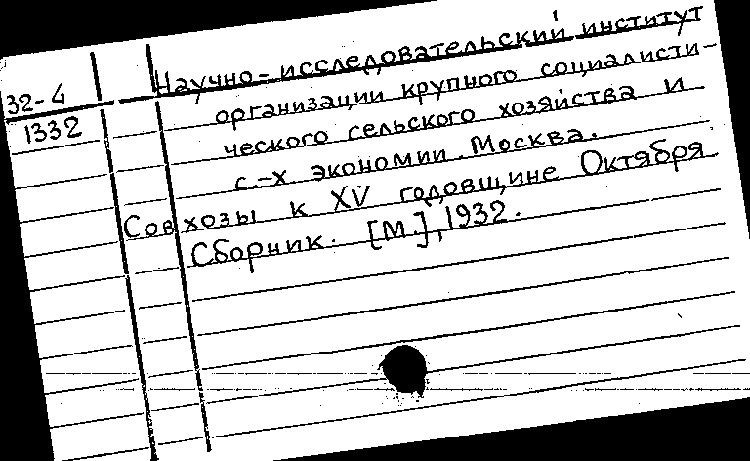 32-4
1332
Научно-исследовательский институт
организации крупного социалисти-
ческого сельского хозяйства и
с.-х экономии. Москва.
Совхозы к XV годовщине Октября
Сборник. [М.], 1932.